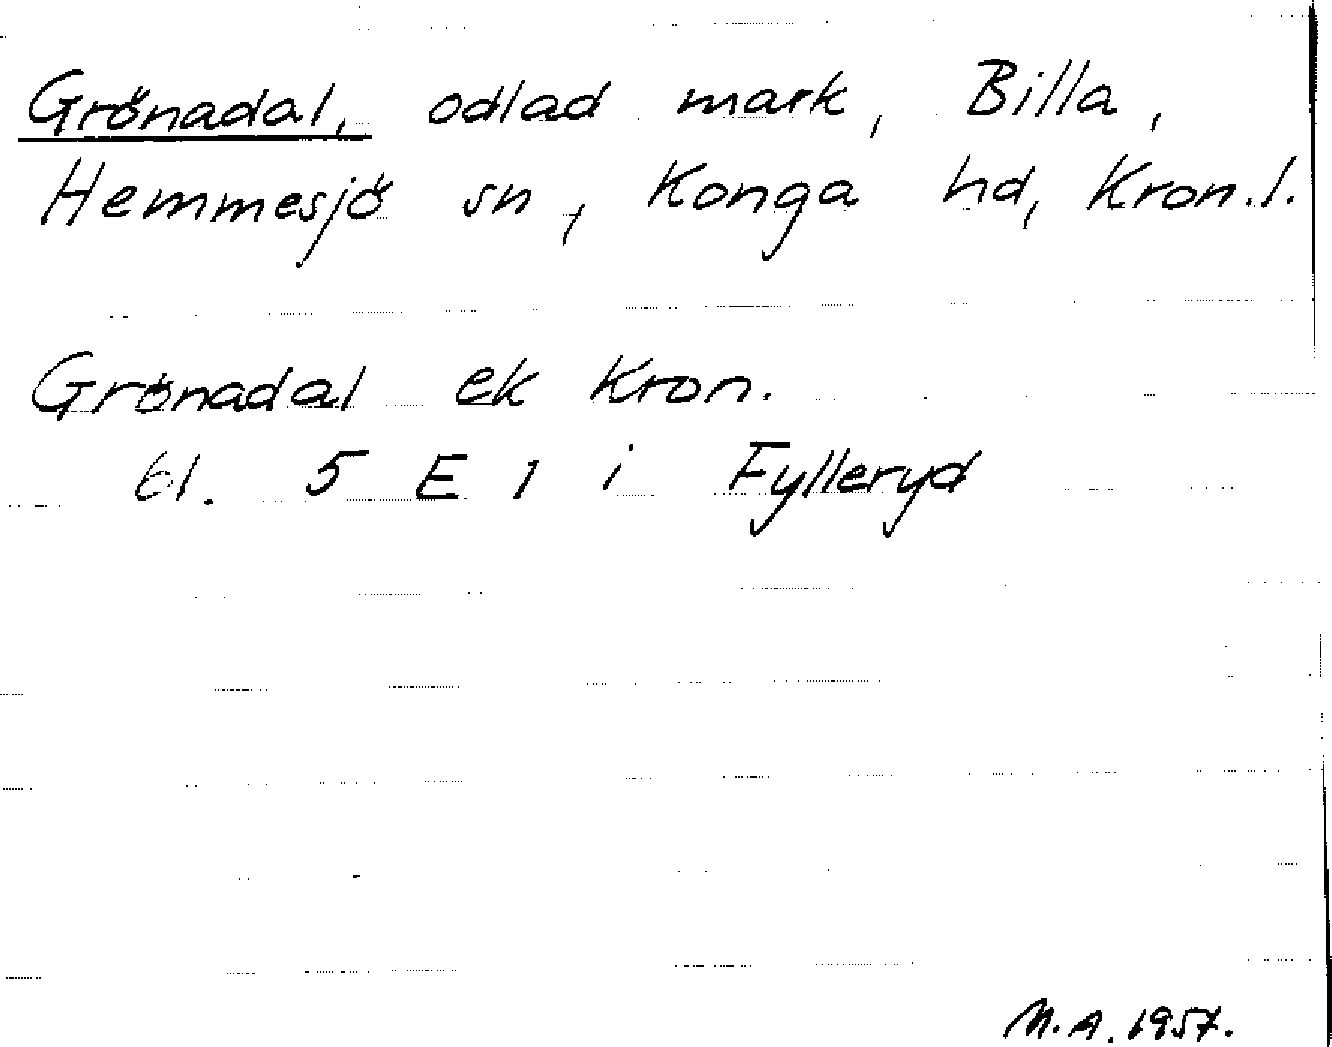 Grönadal, odlad mark, Billa,
Hemmesjö sn, Konga hd, Kron.l.
Grönadal ek Kron.
bl. 5 E 1 i Fylleryd
M.A. 1957.